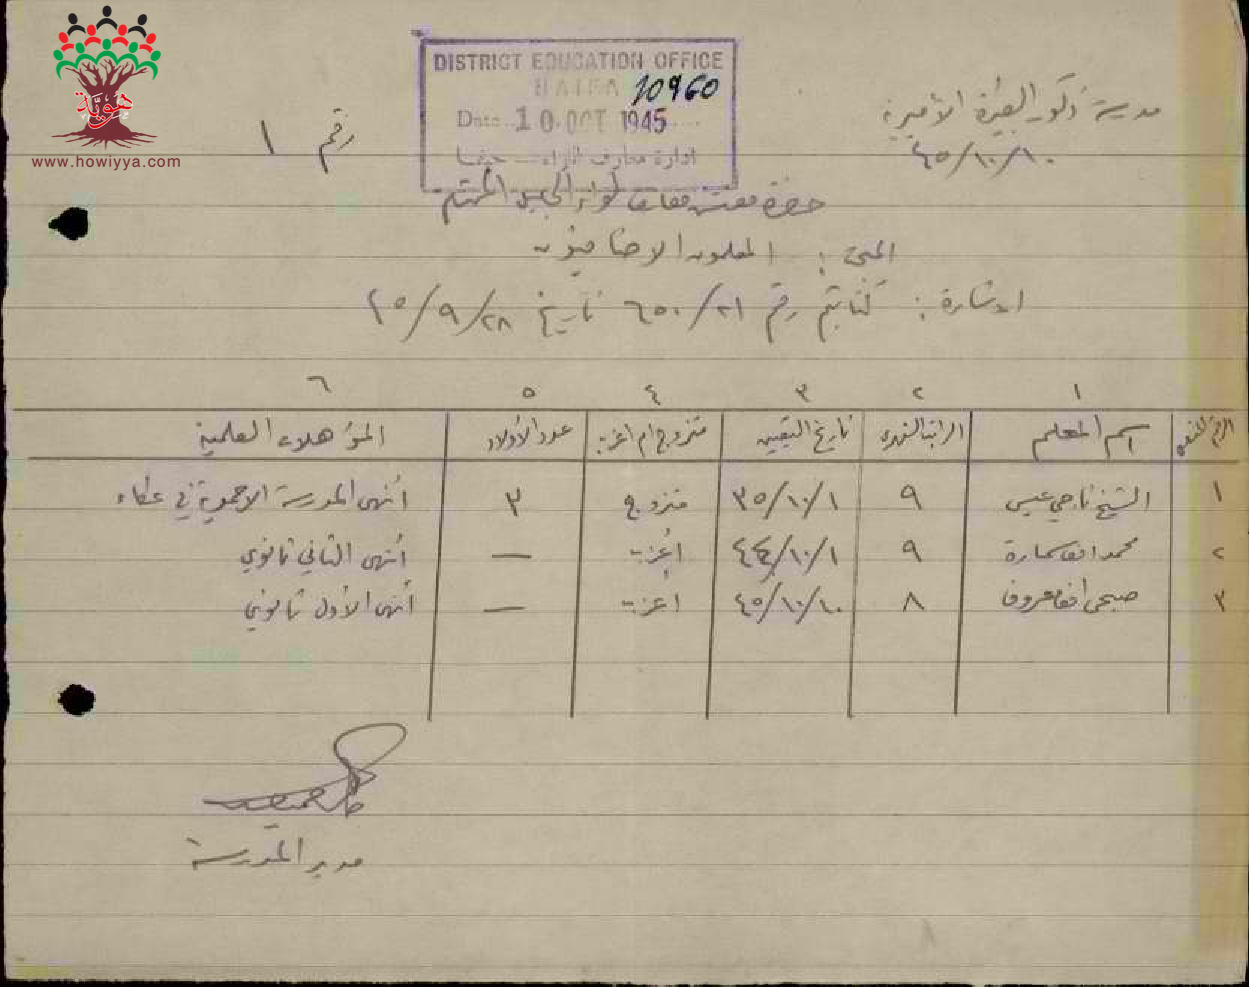 هويّة
www.howiyya.com
DISTRICT EDUCATION OFFICE
HAIFA 10960
Date 10 OCT 1945
ادارة معارف اللواء - حيفا
مدرسة ذكور البصة الأميرية
٤٥/١٠/١٠
رقم ١
حضرة مفتش معارف لواء الجليل المحترم
المعلمون الاضافيون
الاشارة: كتابكم رقم ٦٥٠/٢١ تاريخ ٤٥/٩/٢٨
١ ٢ ٣ ٤ ٥ ٦
اسم المعلم الراتب الشهري تاريخ التعيين متزوج ام اعزب عدد الأولاد المؤهلات العلمية
١ الشيخ ناجي عيسى ٩ ٣٥/١٠/١ متزوج ٣ أنهى المدرسة الاحمدية في عكاء
٢ محمد سمارة ٩ ٤٤/١٠/١ اعزب — أنهى الثاني ثانوي
٣ صبحي معروف ٨ ٤٥/١٠/١٠ اعزب — أنهى الأول ثانوي
مدير المدرسة